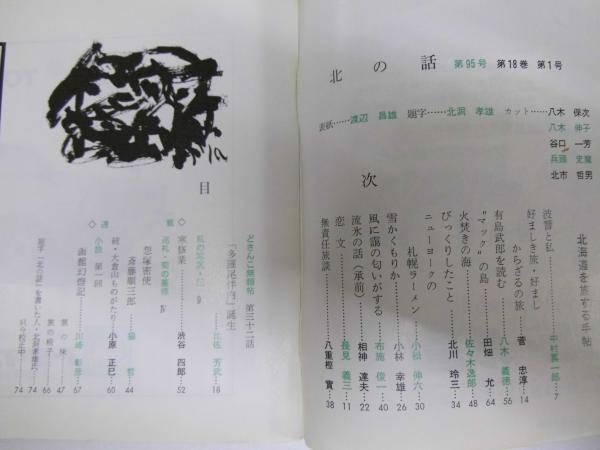 北の話 第95号 第18巻 第1号
表紙……渡辺 昌雄 題字……北浜 孝雄 カット……八木 保次
八木 伸子
谷口 一芳
兵頭 史魔
北市 哲男
目
次
北海道を旅する手帖
波響と私……中村真一郎…7
好ましき旅・好まし
からざる旅……菅 忠淳…14
有島武郎を読む……八木 義徳…56
"マック"の島……田畑 允…64
火焚きの海……佐々木逸郎…48
びっくりしたこと……北川 玲三…34
ニューヨークの
札幌ラーメン……小松 伸六…30
雪かくもりか……小林 幸雄…26
風に靄の匂いがする……布施 俊一…40
流氷の話(承前)……相神 達夫…22
恋文……長見 義三…11
無責任旅談……八重樫 實…38
どさんこ無頼帖 第三十二話
「多羅尾伴内」誕生……比佐 芳武…18
◇連載◇
私の写真・伝 9
寒猿業……渋谷 四郎…52
巡礼・蝦の墓標 Ⅳ
怨塚密使
斎藤順三郎……猫 哲…44
続・大倉山ものがたり……小原 正巳…60
小説 第一回
函館幻燈記……川崎 彰彦…67
薫の味…47
薫の椅子…66
題字「北の話」を書いた人・北浜孝雄氏…74
74